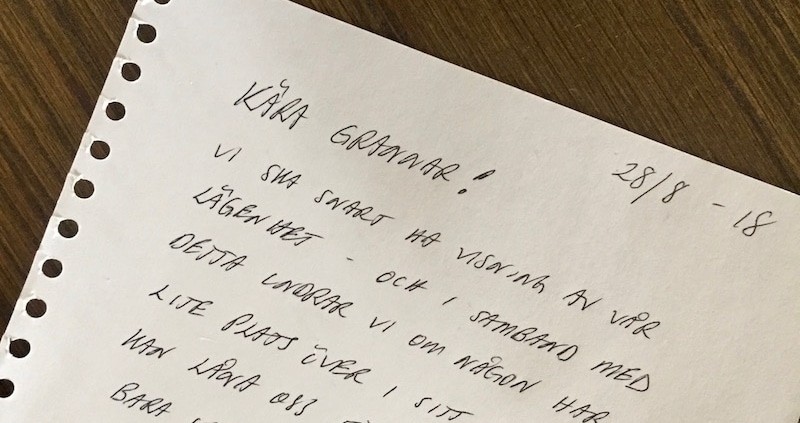 28/8 - 18
KÄRA GRANNAR!
VI SKA SNART HA VISNING AV VÅR
LÄGENHET - OCH I SAMBAND MED
DETTA UNDRAR VI OM NÅGON HAR
LITE PLATS ÖVER I SITT
KAN LÅNA OSS
BARA